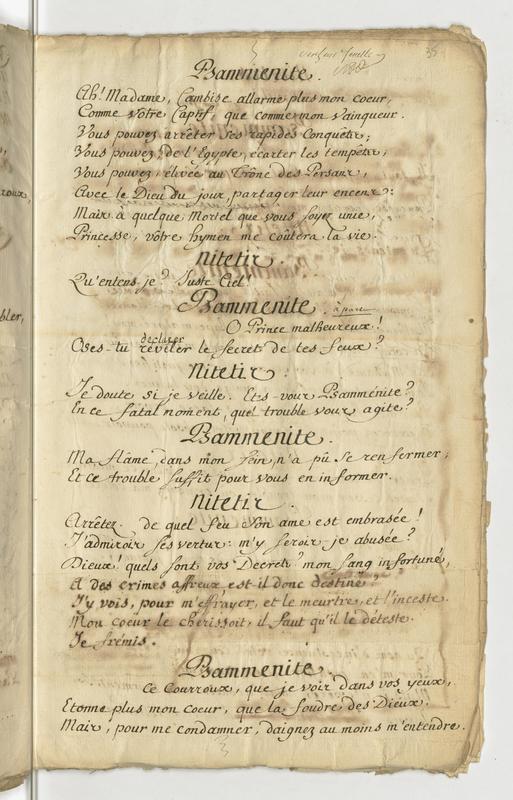 35
Psammenite.
Ah! Madame, Cambise allarme plus mon coeur,
Comme Votre Captif, que comme mon Vainqueur.
Vous pouvez arrêter ses rapides Conquêtes;
Vous pouvez, de l'Egypte, écarter les tempêtes;
Vous pouvez, élevée au Trône des Persans,
Avec le Dieu du jour, partager leur encens:
Mais à quelque Mortel que vous soyez unie,
Princesse, vôtre hymen me coûtera la vie.
Nitetis.
Qu'entens je? Juste Ciel!
Psammenite. à part
O Prince malheureux!
declarer
Oses-tu réveler le secret de tes feux?
Nitetis:
Je doute si je veille. Etes-vous Psamménite?
En ce fatal moment, quel trouble vous agite?
Psammenite.
Ma flâme, dans mon sein, n'a pû se renfermer;
Et ce trouble suffit pour vous en informer.
Nitetis.
Arrêtez. de quel feu son ame est embrasée!
J'admirois ses vertus: m'y serois je abusée?
Dieux! quels sont vos Decrets? mon sang infortuné,
A des crimes affreux est-il donc destiné?
J'y vois, pour m'effrayer, et le meurtre, et l'inceste.
Mon coeur le chérissoit, il faut qu'il le déteste.
Je frémis.
Psammenite.
Ce Courroux, que je vois dans vos yeux,
Etonne plus mon coeur, que la foudre des Dieux.
Mais, pour me condamner, daignez au moins m'entendre.